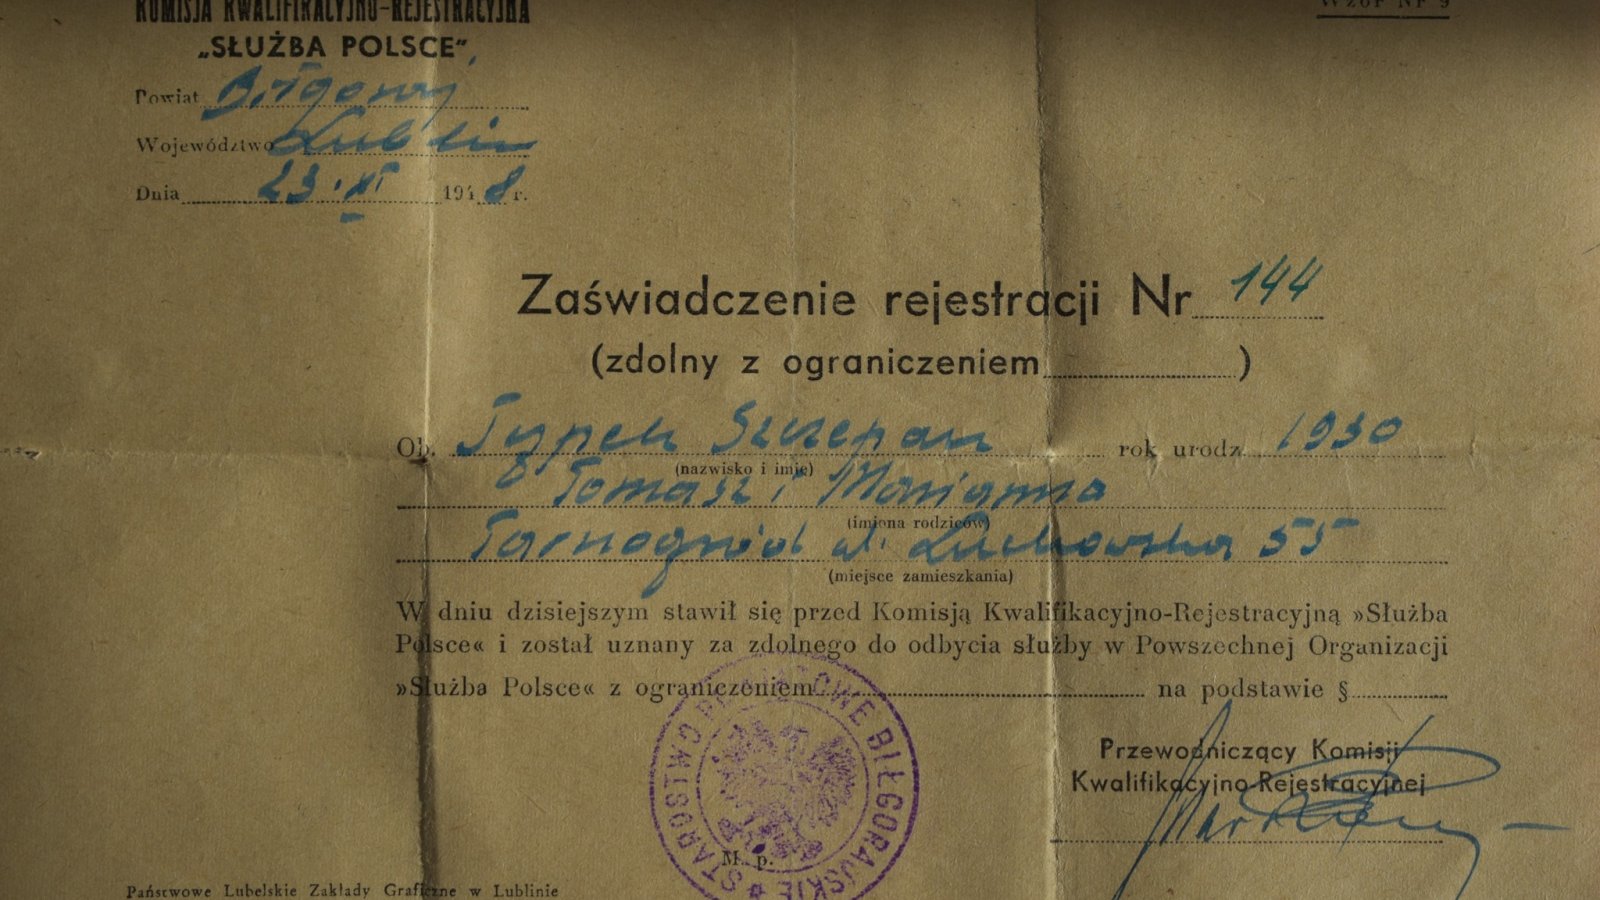 KOMISJA KWALIFIKACYJNO-REJESTRACYJNA
WZÓR NR 9
„SŁUŻBA POLSCE”,
Powiat Biłgoraj
Województwo Lublin
Dnia 23.XI 1948 r.
Zaświadczenie rejestracji Nr 144
(zdolny z ograniczeniem )
Ob. Typek Szczepan rok urodz. 1930
(nazwisko i imię)
Tomasz i Marianna
(imiona rodziców)
Tarnogród ul. Luchowska 55
(miejsce zamieszkania)
W dniu dzisiejszym stawił się przed Komisją Kwalifikacyjno-Rejestracyjną »Służba
Polsce« i został uznany za zdolnego do odbycia służby w Powszechnej Organizacji
»Służba Polsce« z ograniczeniem na podstawie §
Przewodniczący Komisji
Kwalifikacyjno-Rejestracyjnej
STAROSTWO POWIATOWE BIŁGORAJSKIE
M. p.
Państwowe Lubelskie Zakłady Graficzne w Lublinie